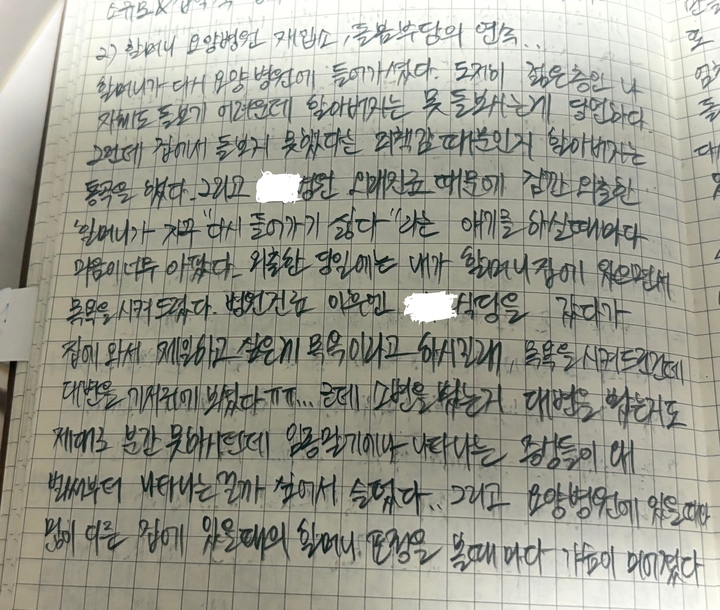 2) 할머니 요양병원 재입소, 돌봄부담의 연속..
할머니가 다시 요양병원에 들어가셨다. 도저히 젊은층인 나
자체도 돌보기 어려운데 할아버지는 못 돌보시는게 당연하다.
그런데 집에서 돌보지 못했다는 죄책감 때문인지 할아버지는
통곡을 했다. 그리고 병원 외래진료 때문에 잠깐 외출한
할머니가 자꾸 "다시 들어가기 싫다"라는 얘기를 하실때마다
마음이 너무 아팠다. 외출한 당일에는 내가 할머니집에 있으면서
목욕을 시켜드렸다. 병원진료 이후엔 식당을 갔다가
집에 와서 제일하고 싶은게 목욕이라고 하시길래, 목욕을 시켜드린건데
대변을 기저귀에 보셨다ㅠㅠ... 근데 소변을 봤는지 대변을 봤는지도
제대로 분간 못하시던데 임종말기에나 나타나는 증상들이 왜
벌써부터 나타나는걸까 싶어서 슬펐다.. 그리고 요양병원에 있을때와
많이 다른 집에 있을때의 할머니 표정을 볼때마다 가슴이 미어졌다